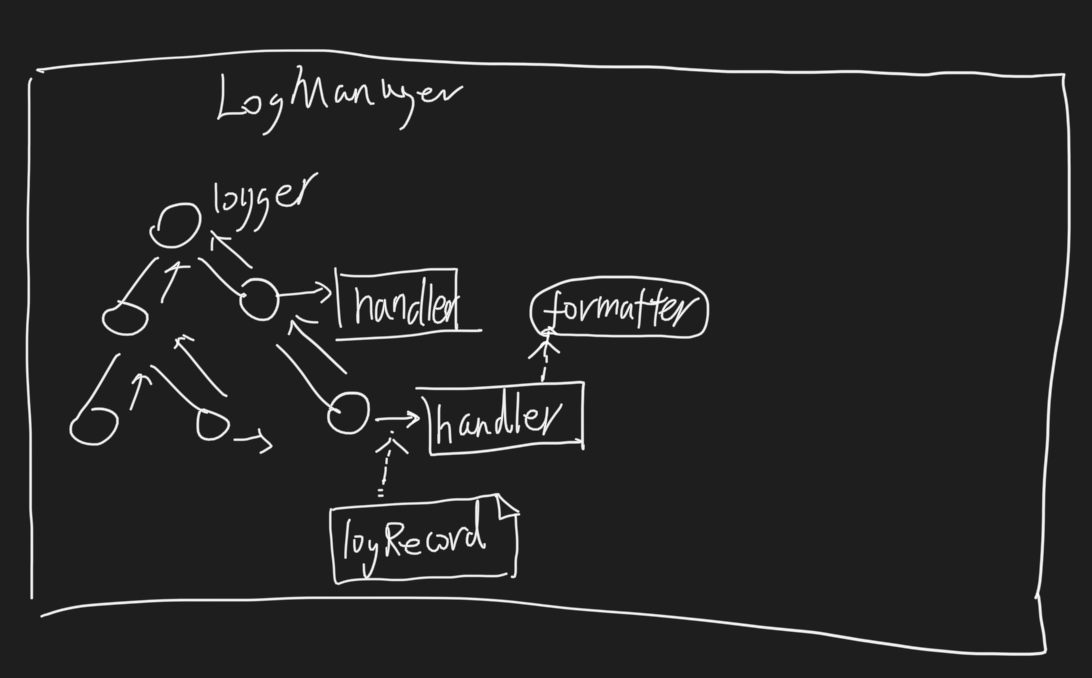 LogManager
logger
handler
formatter
handler
logRecord